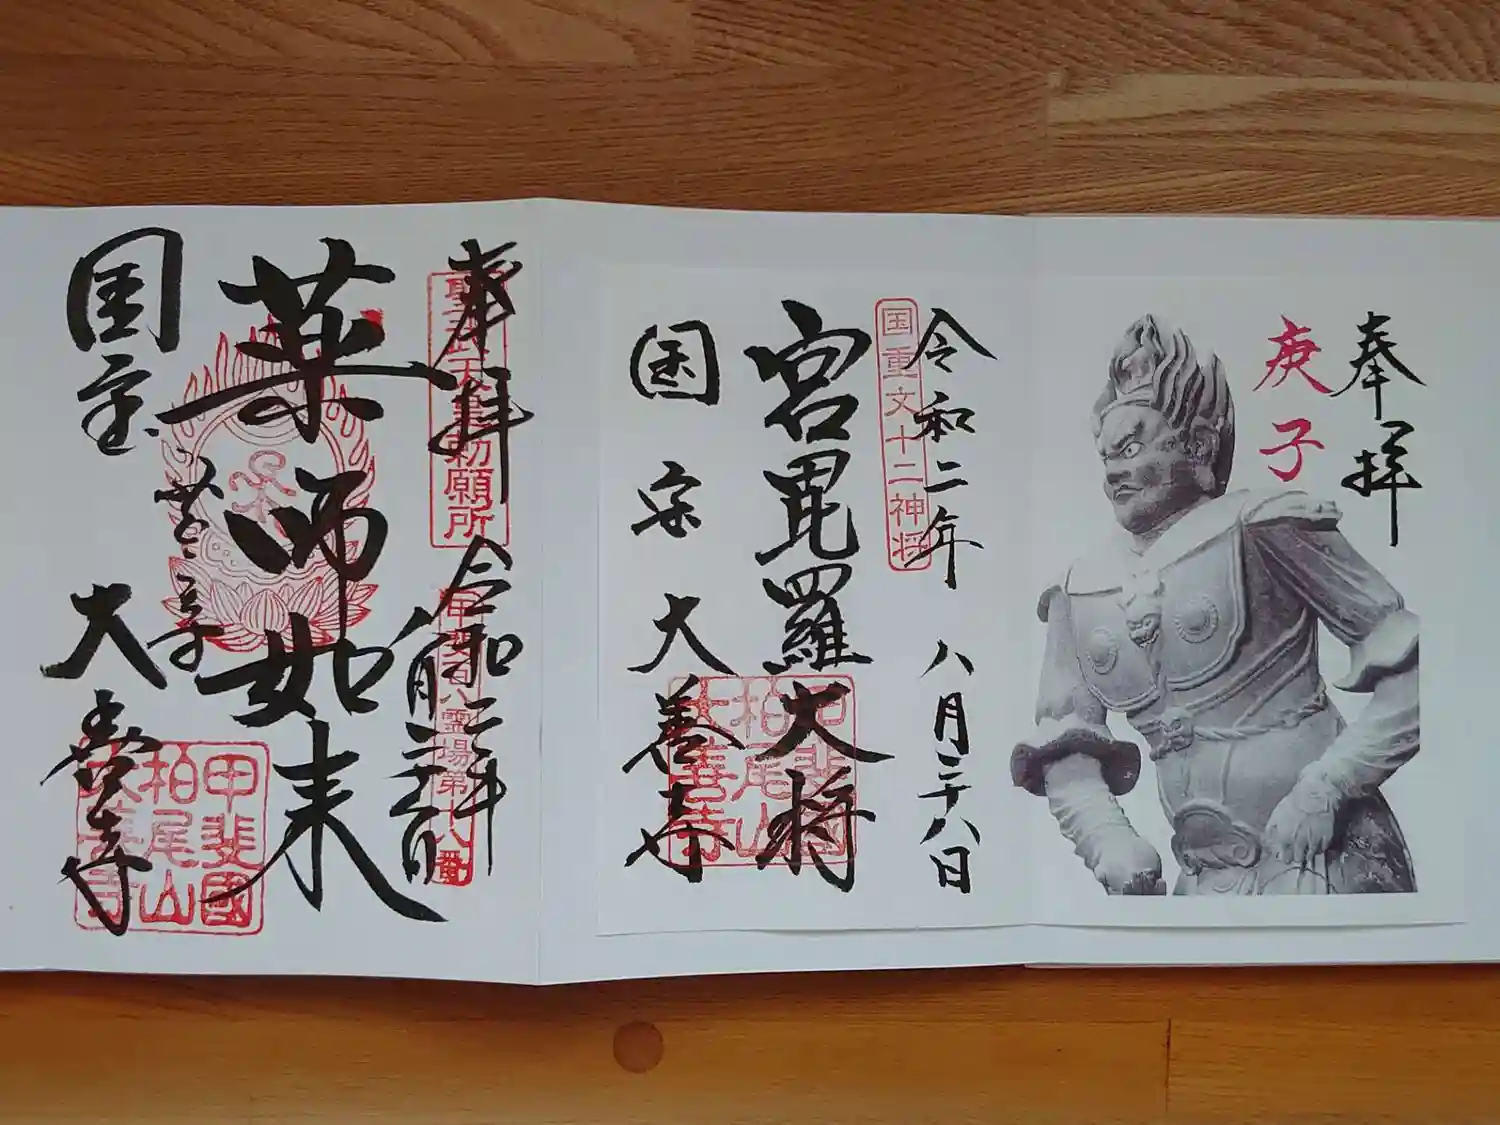 奉拝
庚子
令和二年 八月二十八日
国重文十二神将
宮毘羅大将
甲斐國
柏尾山
大善寺
国宝 大善寺
奉拝
聖武天皇勅願所
令和二年
甲斐百八霊場第十八番
薬師如来
国宝
大善寺
甲斐國
柏尾山
大善寺